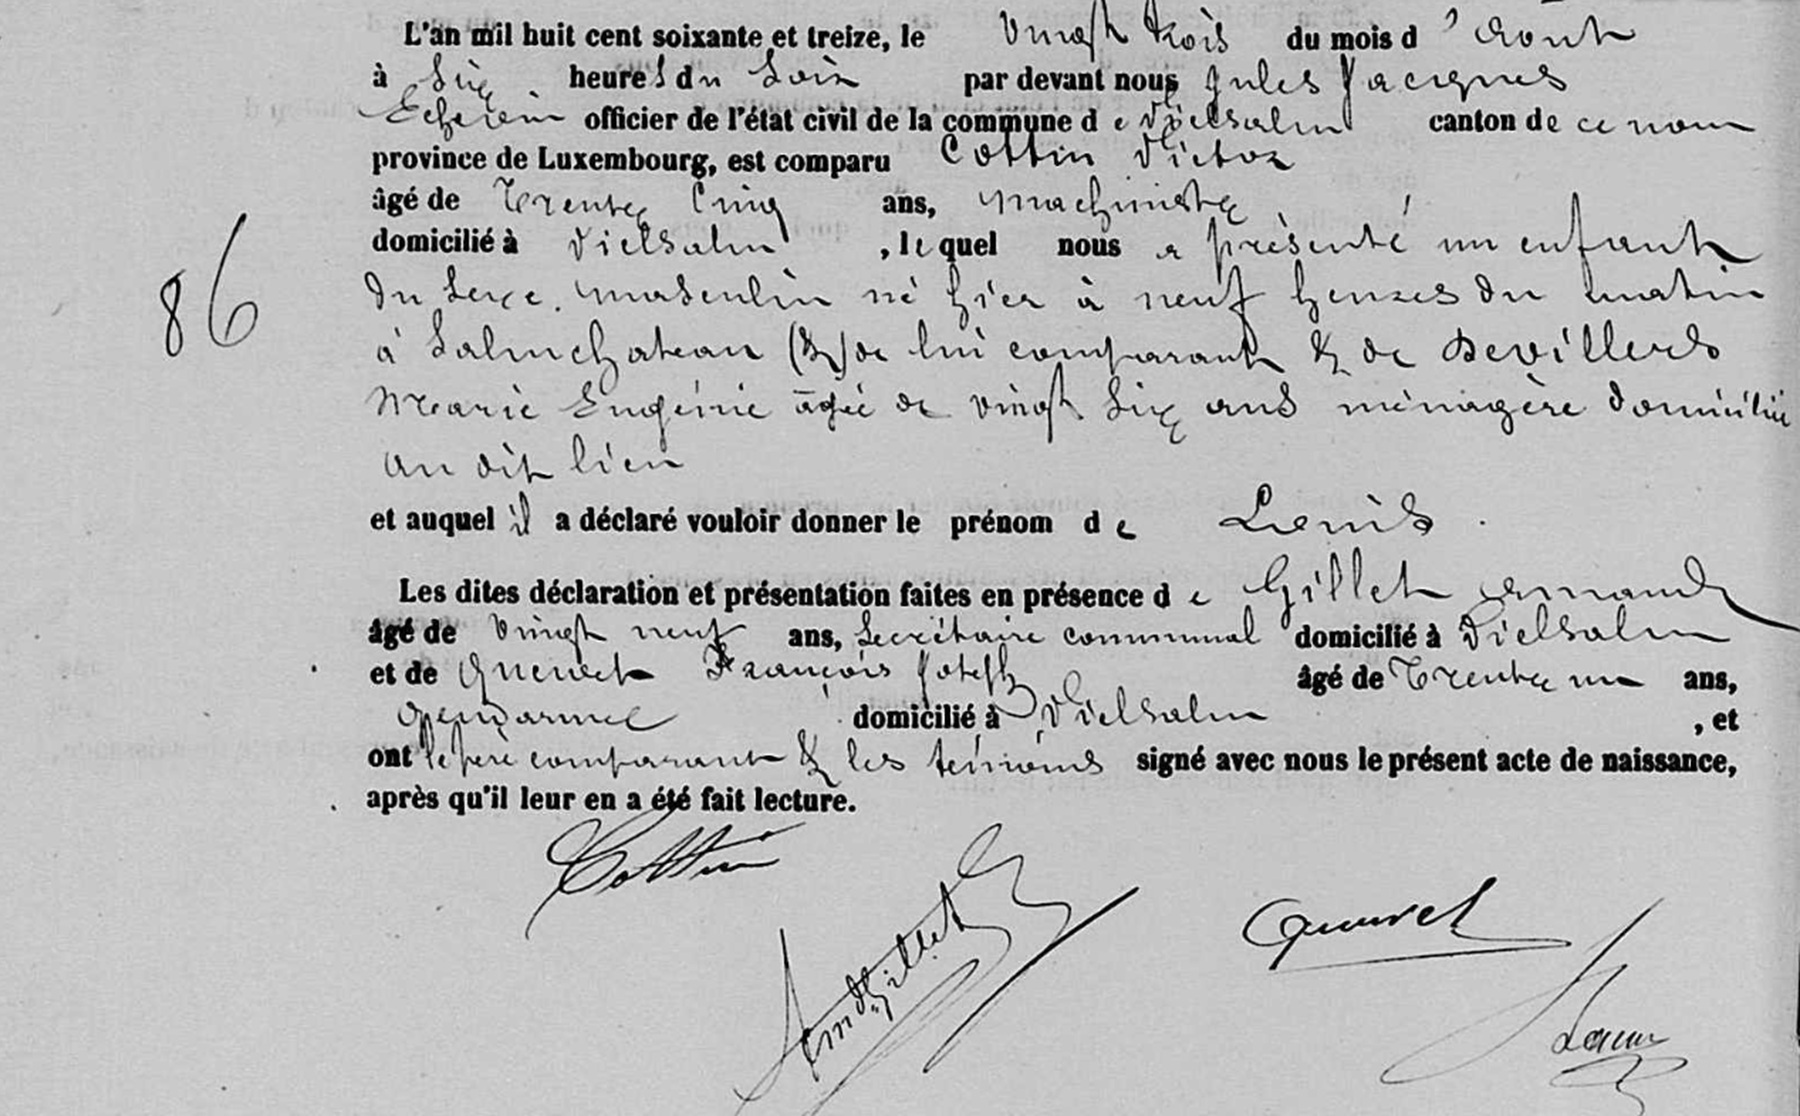 L'an mil huit cent soixante et treize, le vingt trois du mois d'Août
à Six heures du Soir par devant nous Jules Jacques
Echevin officier de l'état civil de la commune de Vielsalm canton de ce nom
province de Luxembourg, est comparu Cottin Victor
âgé de Trente Cinq ans, machiniste
domicilié à Vielsalm, lequel nous a présenté un enfant
du Sexe masculin né hier à neuf heures du matin
86
à Salmchateau (&) de lui comparant & de Devillers
Marie Eugénie âgée de vingt Six ans ménagère domiciliée
au dit lieu
et auquel il a déclaré vouloir donner le prénom de Louis.
Les dites déclaration et présentation faites en présence de Gillet Armand
âgé de Vingt neuf ans, Secrétaire communal domicilié à Vielsalm
et de François Joseph âgé de Trente un ans,
gendarme domicilié à Vielsalm, et
ont le père comparant & les témoins signé avec nous le présent acte de naissance,
après qu'il leur en a été fait lecture.
Cottin
Armd Gillet